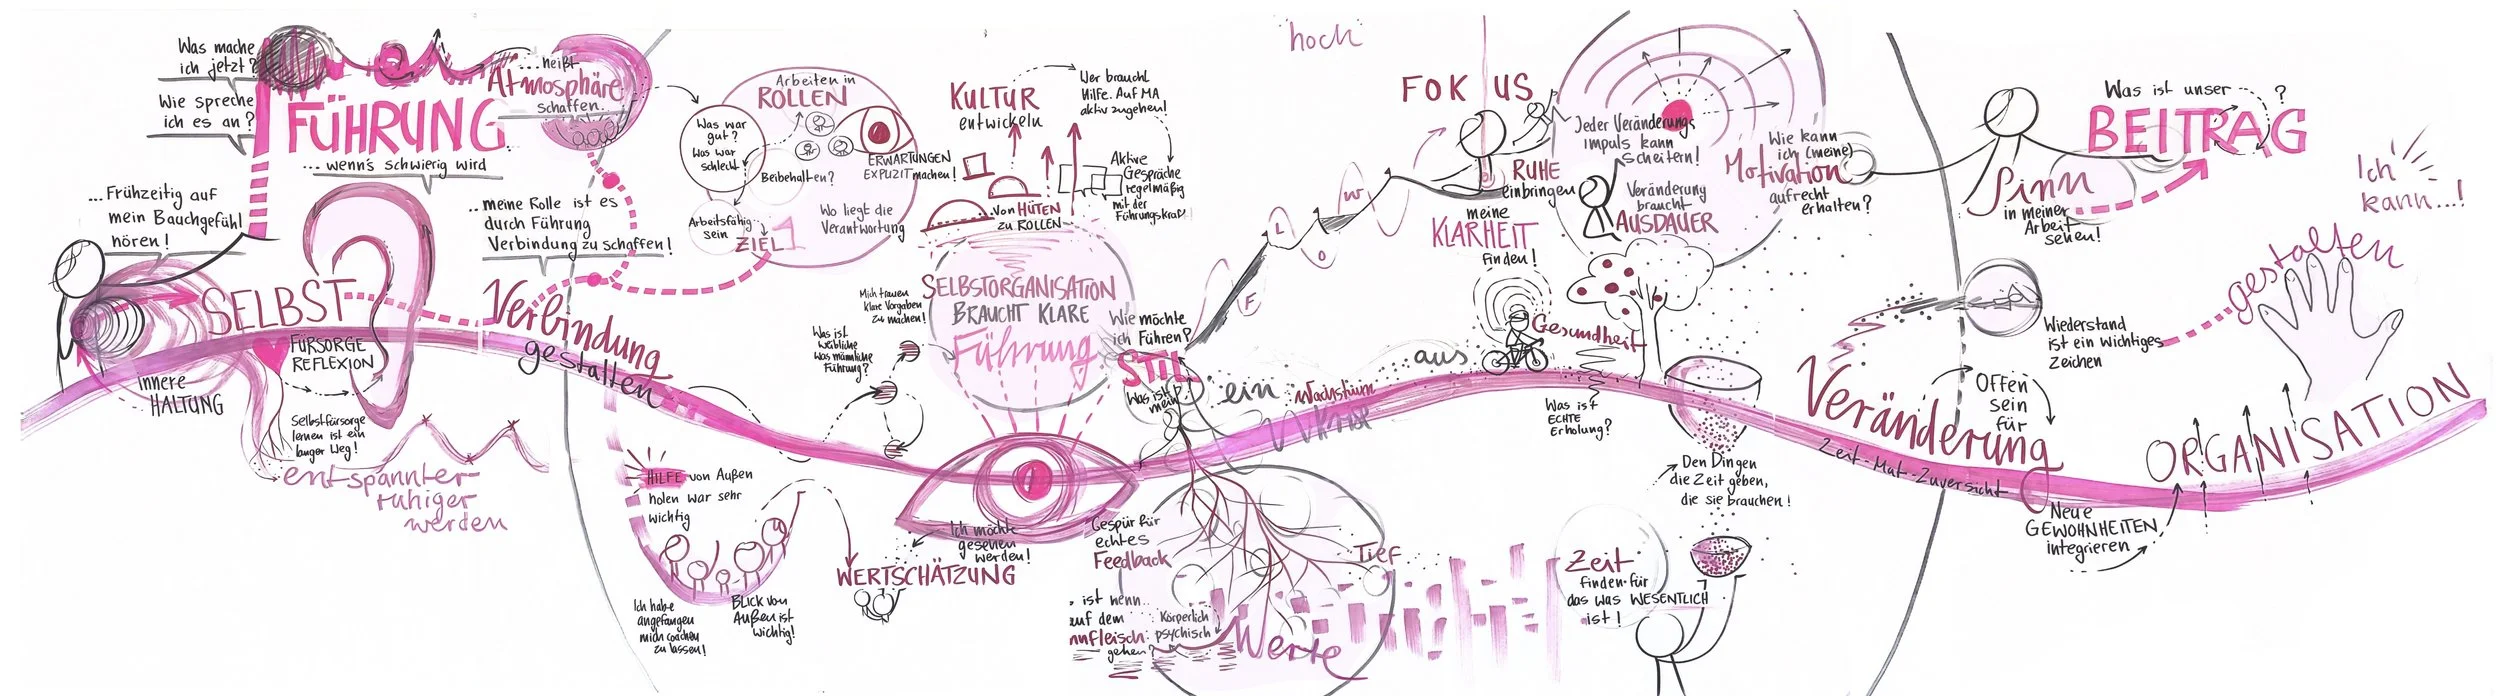 Was mache
ich jetzt?
Wie spreche
ich es an?
FÜHRUNG
... wenn's schwierig wird
... heißt
Atmosphäre
schaffen.
... Frühzeitig auf
mein Bauchgefühl
hören!
SELBST
FÜRSORGE
REFLEXION
innere
HALTUNG
Selbstfürsorge
lernen ist ein
langer Weg!
entspannter
ruhiger
werden
... meine Rolle ist es
durch Führung
Verbindung zu schaffen!
Verbindung
gestalten
Arbeiten in
ROLLEN
Was war
gut?
Was war
schlecht
Beibehalten?
ERWARTUNGEN
EXPLIZIT machen!
Arbeitsfähig
sein
ZIEL
Wo liegt die
Verantwortung
KULTUR
entwickeln
Wer braucht
Hilfe. Auf MA
aktiv zugehen!
Aktive
Gespräche
regelmäßig
mit der
Führungskraft
... von HÜTEN
zu ROLLEN
SELBSTORGANISATION
BRAUCHT KLARE
Führung
Mich trauen
klare Vorgaben
zu machen!
Was ist
weibliche
Was männliche
Führung?
HILFE von Außen
holen war sehr
wichtig
Ich habe
angefangen
mich coachen
zu lassen!
BLICK von
Außen ist
wichtig!
Ich möchte
gesehen
werden!
WERTSCHÄTZUNG
Wie möchte
ich Führen?
STIL
Was ist
mein
Gespür für
echtes
Feedback
ist wenn..
auf dem
nnfleisch
gehen?
körperlich
psychisch
Werte
Tief
hoch
F
L
O
W
FOKUS
RUHE
einbringen
meine
KLARHEIT
finden!
ein
Wachstum
aus
Gesundheit
Was ist
ECHTE
Erholung?
Jeder Veränderungs
impuls kann
scheitern!
Veränderung
braucht
AUSDAUER
Wie kann
ich (meine)
Motivation
aufrecht
erhalten?
Den Dingen
die Zeit geben,
die sie brauchen!
Zeit
finden für
das was WESENTLICH
ist!
Was ist unser ?
BEITRAG
Sinn
in meiner
Arbeit
sehen!
Ich
kann...!
gestalten
Wiederstand
ist ein wichtiges
Zeichen
Veränderung
Zeit - Mut - Zuversicht
Offen
sein
für
Neue
GEWOHNHEITEN
integrieren
ORGANISATION